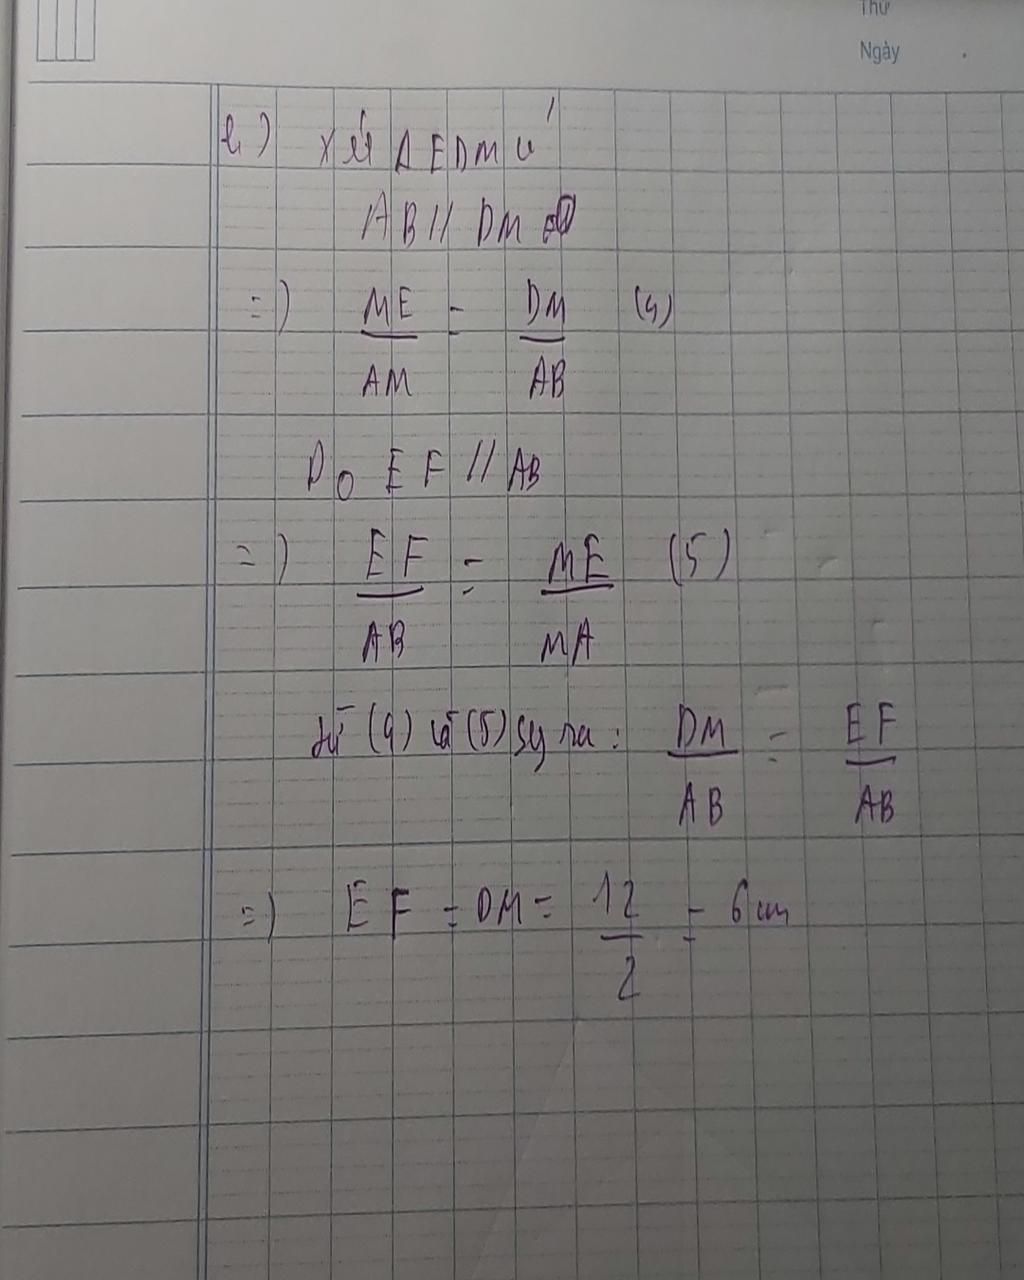 Thứ
Ngày .
b) Xét Δ EDM có
AB // DM
=) ME/AM = DM/AB (4)
Do EF // AB
=) EF/AB = ME/MA (5)
từ (4) và (5) suy ra: DM/AB = EF/AB
=) EF = DM = 12/2 = 6 cm